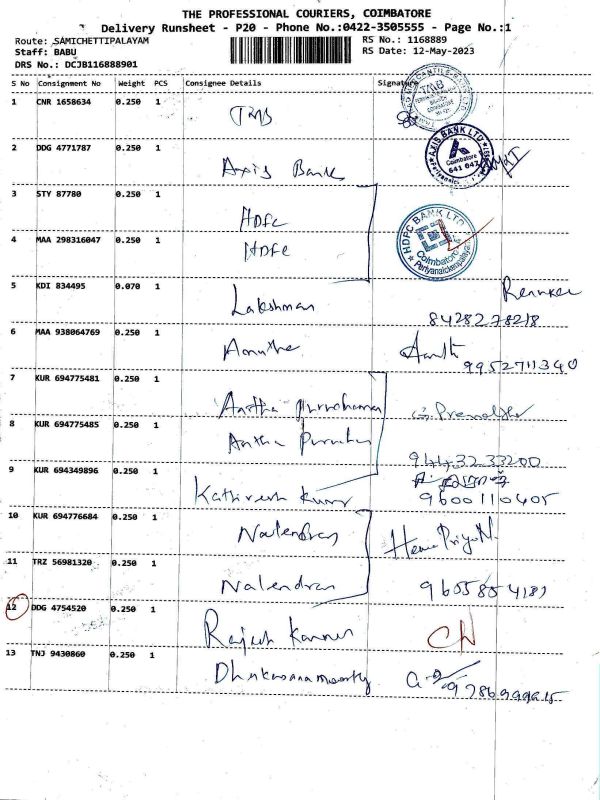 THE PROFESSIONAL COURIERS, COIMBATORE
Delivery Runsheet - P20 - Phone No.:0422-3505555 - Page No.:1
Route: SAMICHETTIPALAYAM RS No.: 1168889
Staff: BABU RS Date: 12-May-2023
DRS No.: DCJB116888901
S No Consignment No Weight PCS Consignee Details Signature
1 CNR 1658634 0.250 1 TMB
TMB
COIMBATORE
2 DDG 4771787 0.250 1 Axis Bank
AXIS BANK LTD
Coimbatore
641 047
3 STY 87780 0.250 1 HDFC
4 MAA 298316047 0.250 1 HDFC
HDFC BANK LTD
Coimbatore
Periyanaickenpalayam
5 KDI 834495 0.070 1 Lakshman
8428278218
6 MAA 938064769 0.250 1
9952711340
7 KUR 694775481 0.250 1
8 KUR 694775485 0.250 1
9443233200
9 KUR 694349896 0.250 1 Kathiresh Kumar
9600110405
10 KUR 694776684 0.250 1 Natendran
11 TRZ 56981320 0.250 1 Natendran
12 DDG 4754520 0.250 1 Rajesh Kannan CN
13 TNJ 9430860 0.250 1